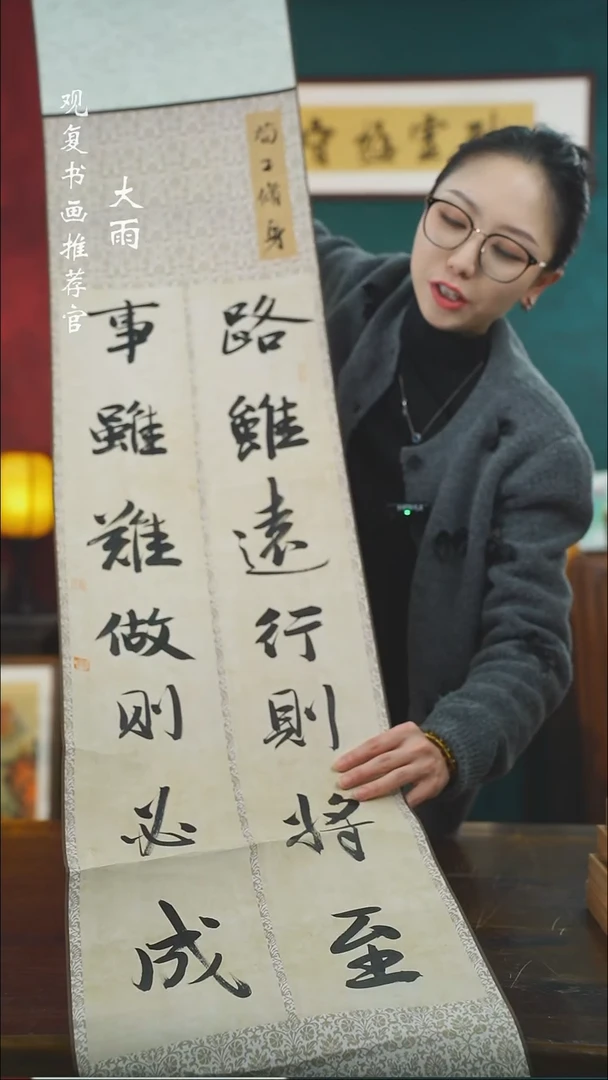 观复书画推荐官
大雨
荀子修身
路雖遠行則將至
事雖難做则必成